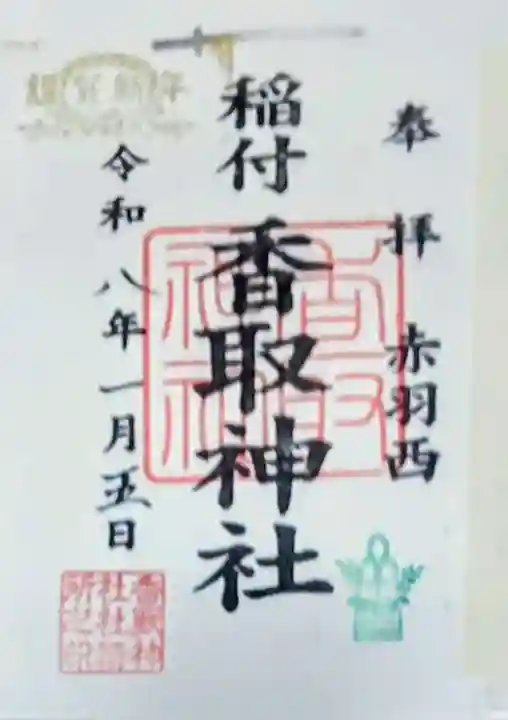 奉拝 赤羽西
稲付 香取神社
令和八年一月五日
謹賀新年
香取神社